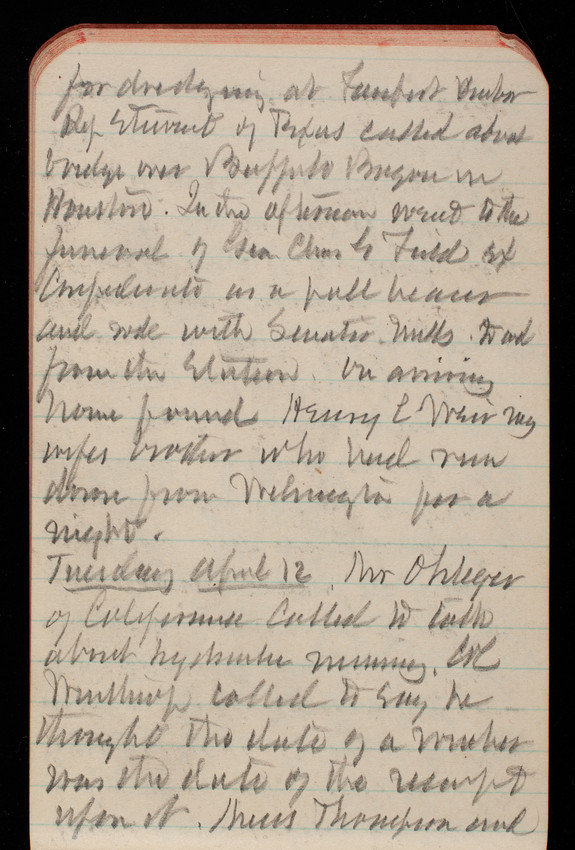 for dredging at
Rep Stewart of Texas called about
bridge over Buffalo Bayou in
Houston. In the afternoon went to the
funeral of Gen Chas W Field ex
Confederate as a pall bearer
and rode with Senator Mills to and
from the Station. On arriving
home found Henry C Weir my
wifes brother who had run
down from Wilmington for a
night.
Tuesday April 12. Mr Ohleyer
of California called to talk
about hydraulic mining. Col
Winthrop called to say he
thought the date of a voucher
was the date of the receipt
upon it. Miss Thompson and